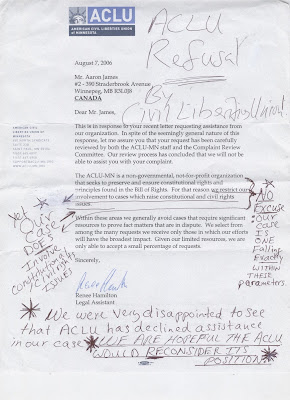 ACLU
AMERICAN CIVIL LIBERTIES UNION
of MINNESOTA
ACLU
Refusal
By
Civil Liberties Union.
August 7, 2006
Mr. Aaron James
#2 - 590 Stradbrook Avenue
Winnepeg, MB R3L0J8
CANADA
Dear Mr. James,
This is in response to your recent letter requesting assistance from
our organization. In spite of the seemingly general nature of this
response, let me assure you that your request has been carefully
reviewed by both the ACLU-MN staff and the Complaint Review
Committee. Our review process has concluded that we will not be
able to assist you with your complaint.
The ACLU-MN is a non-governmental, not-for-profit organization
that seeks to preserve and assure constitutional rights and
principles found in the Bill of Rights. For that reason we restrict our
involvement to cases which raise constitutional and civil rights
issues.
Within these areas we generally avoid cases that require significant
resources to prove fact matters that are in dispute. We select from
among the many requests we receive only those in which our efforts
will have the broadest impact. Given our limited resources, we are
only able to accept a small percentage of requests.
Renee Hamilton
Legal Assistant
Yet
Our
Case
DOES
Involve
constitutional/
Civil Rights
ISSUE!
NO
EXCUSE
OUR
CASE
IS
ONE
Falling
Exactly
WITHIN
THESE
parameters.
We were very disappointed to see
that ACLU has declined assistance
in our case WE ARE HOPEFUL THE ACLU
WOULD RECONSIDER ITS
POSITION